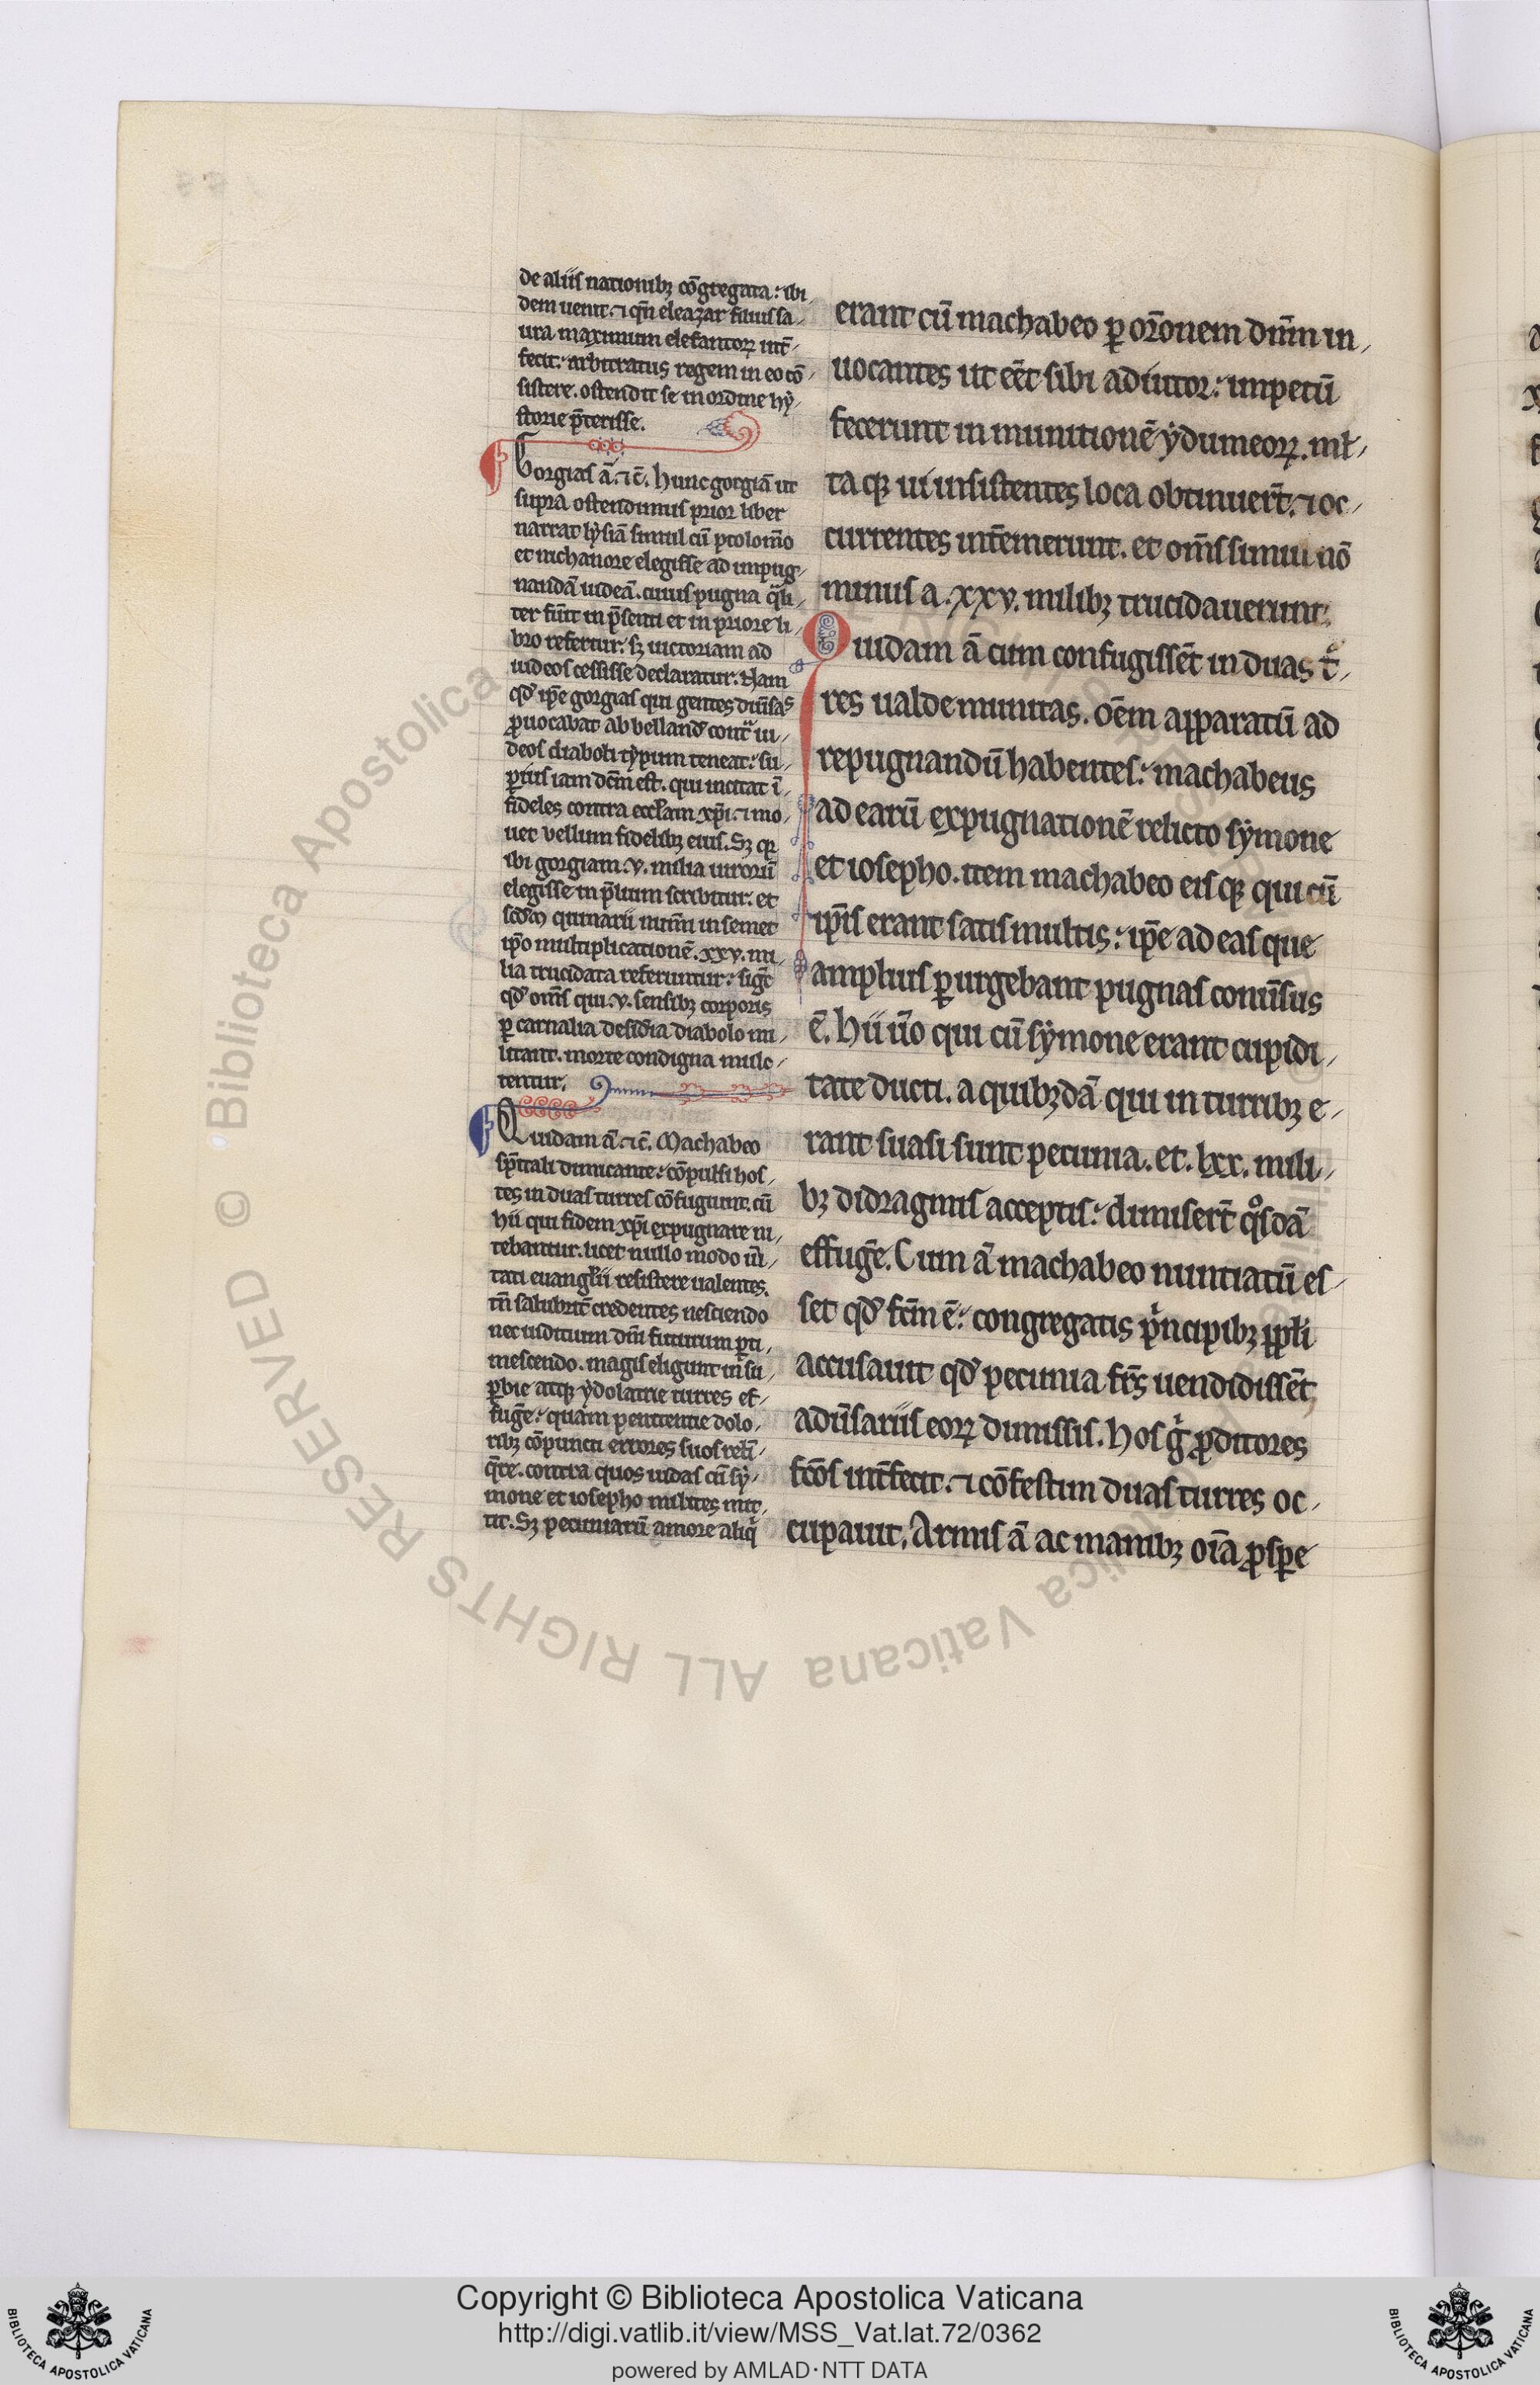 de aliis nationibꝫ cōgregata: ibi
dem uenit. ⁊ qn̄ eleazar filius sa
ura maximum elefantoꝝ int̄
fecit: arbitratus regem in eo cō
sistere. ostendit se in ordine hẏ
storie p̄terisse.
Gorgias ā. ⁊c̄. hunc gorgiā ut
supra ostendimus prior liber
narrat lẏsiā simul cū ptolom̄o
et nichanore elegisse ad impug
nandā iudeā. cuius pugna qͣli
ter fūit in p̄senti et in priore li
bro refertur: sꝫ uictoriam ad
iudeos cessisse declaratur. Nam
qd̓ ip̄e gorgias qui gentes diūsas
ꝓuocabat ab belland̓ contͣ iu
deos diaboli tẏpum teneat: su
ꝑius iam dc̄m est. qui incitat ī
fideles contra eccl̓am xp̄i. ⁊ mo
uet bellum fidelibꝫ eius. Sꝫ qꝛ
ibi gorgiam .v. milia uirorū
elegisse in p̄lium scribitur: et
scd̓m quinarii num̄ in semet
ip̄o multiplicationē .xxv. mi
lia trucidata referuntur: sigt̄
qd̓ om̄s qui .v. sensibꝫ corporis
ꝑ carnalia desid̓ia diabolo mi
litant. morte condigna mulc
tentur.
Quidam ā. ⁊c̄. Machabeo
sp̄itali dimicante: cōpulsi hos
tes in duas turres cōfugiunt. cū
hii qui fidem xp̄i expugnare ni
tebantur. licet nullo modo ūi
tati euangl̓ii resistere ualentes.
tn̄ salubrit̄ credentes nesciendo
nec iudicium dn̄i futurum ꝑti
mescendo. magis eligunt in su
ꝑbie atqꝫ ẏdolatrie turres ef
fuge̓: quam penitentie dolo
ribꝫ cōpuncti errores suos reli̓
q̄re. contra quos iudas cū sẏ
mone et iosepho milites mit
tit. Sꝫ pecuniarū amore aliqͥ
erant cū machabeo ꝑ or̄onem dn̄m in
uocantes ut eēt sibi adiutor: impetū
fecerunt in munitionē ẏdumeoꝝ. ml̓
taqꝫ ui insistentes loca obtinuer̄t. ⁊ oc
currentes int̄emerunt. et om̄s simul nō
minus a .xxv. milibꝫ trucidauerunt.
Quidam ā cum confugissēt in duas tͬ
res ualde munitas. ōem apparatū ad
repugnandū habentes: machabeus
ad earū expugnationē relicto sẏmone
et iosepho. item machabeo eisqꝫ qui cū
ip̄is erant satis multis: ip̄e ad eas que
amplius ꝑurgebant pugnas conūsus
ē. hii ūo qui cū sẏmone erant cupidi
tate ducti. a quibꝫdā qui in turribꝫ e
rant suasi sunt pecunia. et .lxx. mili
bꝫ didragmis acceptis: dimiser̄t qͦsdā
effuge̓. Cum ā machabeo nuntiatū es
set qd̓ fc̄m ē: congregatis pͥncipibꝫ ppl̓i
accusauit qd̓ pecunia fr̄s uendidissēt
adūsariis eoꝝ dimissis. hos gͥ ꝓditores
fcōs int̄fecit. ⁊ cōfestim duas turres oc
cupauit. Armis ā ac manibꝫ oīa ꝓspe
Copyright © Biblioteca Apostolica Vaticana
http://digi.vatlib.it/view/MSS_Vat.lat.72/0362
powered by AMLAD·NTT DATA
BIBLIOTECA APOSTOLICA VATICANA
BIBLIOTECA APOSTOLICA VATICANA
© Biblioteca Apostolica Vaticana ALL RIGHTS RESERVED